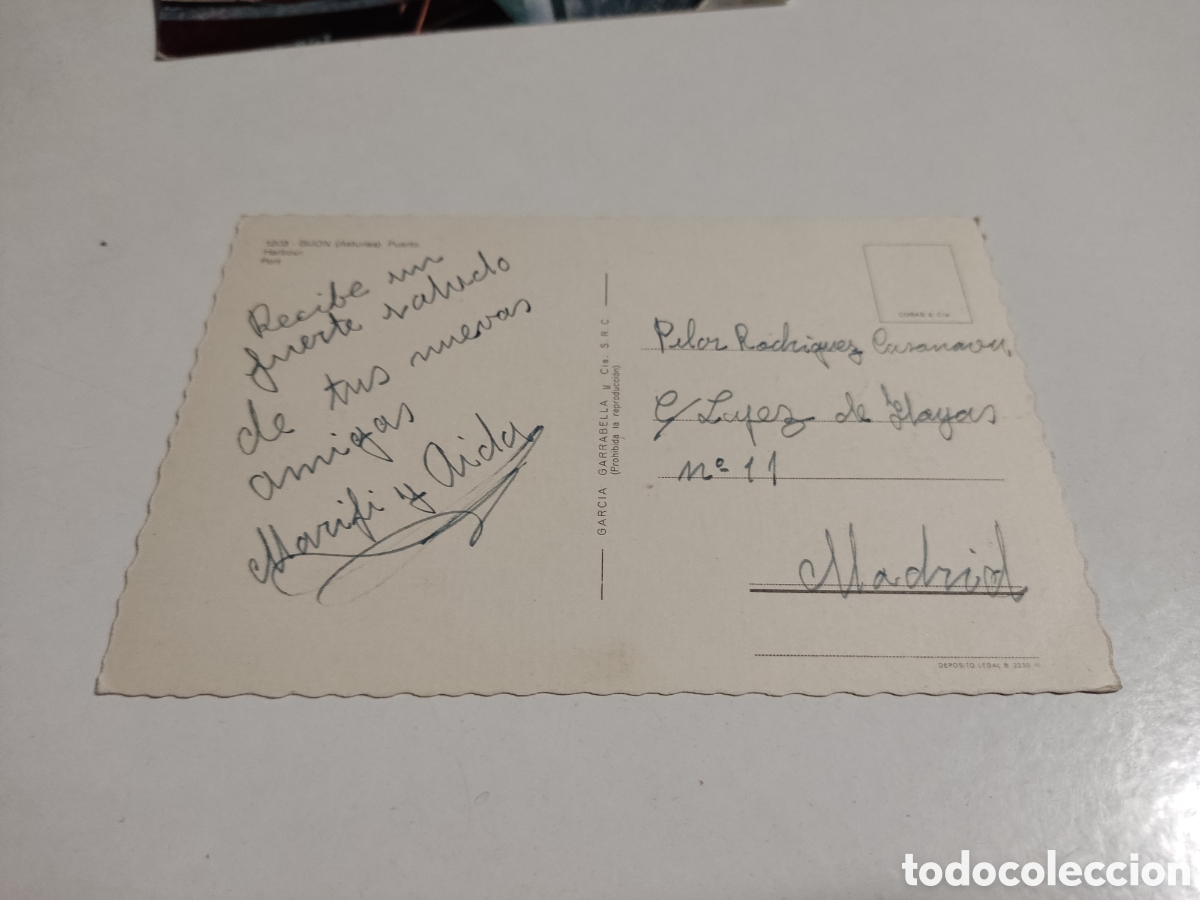 1203 - GIJON (Asturias) Puerto
Harbour
Port
Recibe un
fuerte saludo
de tus nuevas
amigas
Marifi y Aida
GARCIA GARRABELLA y Cia. S.R.C.
(Prohibida la reproducción)
Pilar Rodriguez Casanova,
C/ Lopez de Hayas
nº 11
Madrid
DEPOSITO LEGAL B.
todocoleccion